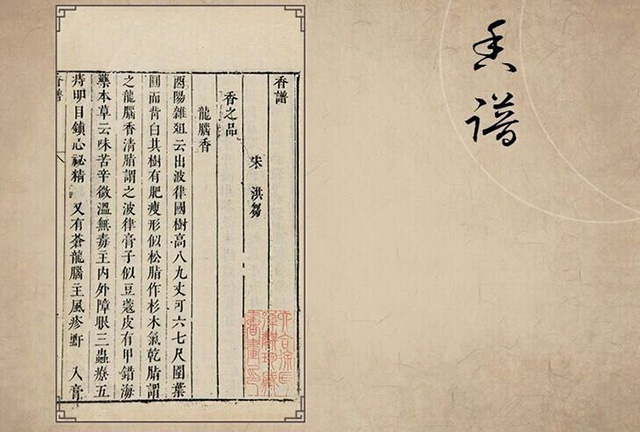 香谱
香譜
宋 洪芻
香之品
龍腦香
酉陽雜俎云出波律國樹高八九丈可六七尺圍葉
圓而背白其樹有肥瘦形似松脂作杉木氣乾脂謂
之龍腦香清脂謂之波律膏子似豆蔻皮有甲錯海
藥本草云味苦辛微溫無毒主内外障眼三蟲療五
痔明目鎮心祕精 又有蒼龍腦主風疹䵟 入膏
香譜